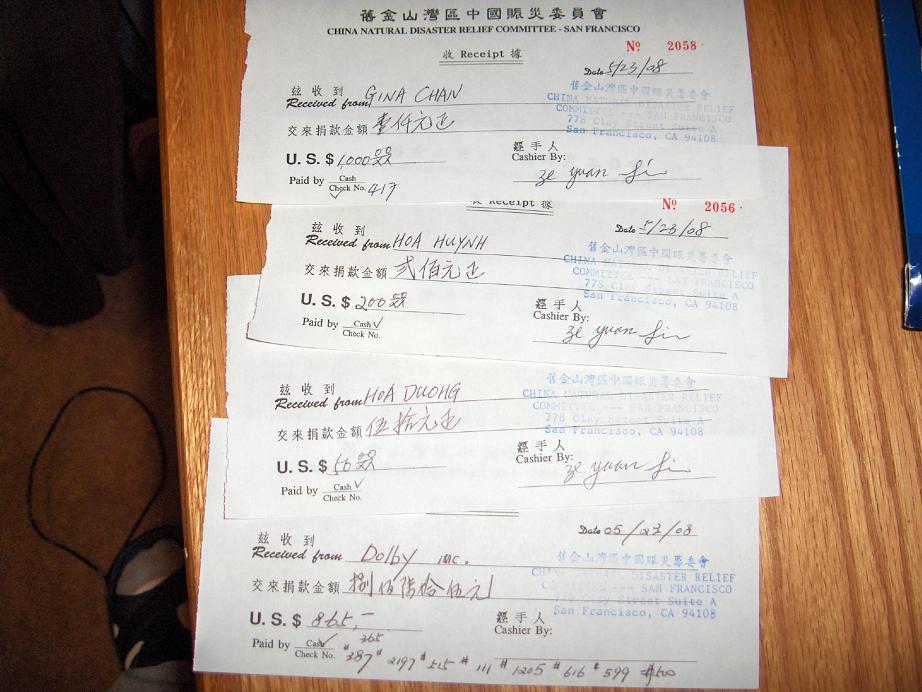 舊金山灣區中國賑災委員會
CHINA NATURAL DISASTER RELIEF COMMITTEE - SAN FRANCISCO
收 Receipt 據
№ 2058
Date 5/23/08
茲收到
Received from GINA CHAN
舊金山灣區中國賑災籌委會
CHINA NATURAL DISASTER RELIEF
COMMITTEE --- SAN FRANCISCO
778 Clay Street Suite A
San Francisco, CA 94108
交來捐款金額 壹仟元正
U.S. $ 1,000 00/XX
經手人
Cashier By: Ze Yuan Li
Paid by Cash
Check No. ✓ 417
收 Receipt 據
№ 2056
Date 5/23/08
茲收到
Received from HOA HUYNH
舊金山灣區中國賑災籌委會
CHINA NATURAL DISASTER RELIEF
COMMITTEE --- SAN FRANCISCO
778 Clay Street Suite A
San Francisco, CA 94108
交來捐款金額 弍佰元正
U.S. $ 200 00/XX
經手人
Cashier By: Ze Yuan Li
Paid by Cash ✓
Check No.
茲收到
Received from HOA DUONG
舊金山灣區中國賑災籌委會
CHINA NATURAL DISASTER RELIEF
COMMITTEE --- SAN FRANCISCO
778 Clay Street Suite A
San Francisco, CA 94108
交來捐款金額 伍拾元正
U.S. $ 50 00/XX
經手人
Cashier By: Ze Yuan Li
Paid by Cash ✓
Check No.
Date 05/23/08
茲收到
Received from Dolby INC.
舊金山灣區中國賑災籌委會
CHINA NATURAL DISASTER RELIEF
COMMITTEE --- SAN FRANCISCO
778 Clay Street Suite A
San Francisco, CA 94108
交來捐款金額 捌佰陸拾伍元
U.S. $ 865.-
經手人
Cashier By:
Paid by Cash ✓ 365
Check No. #387 #2197 #515 #111 #1205 #616 #599 $500